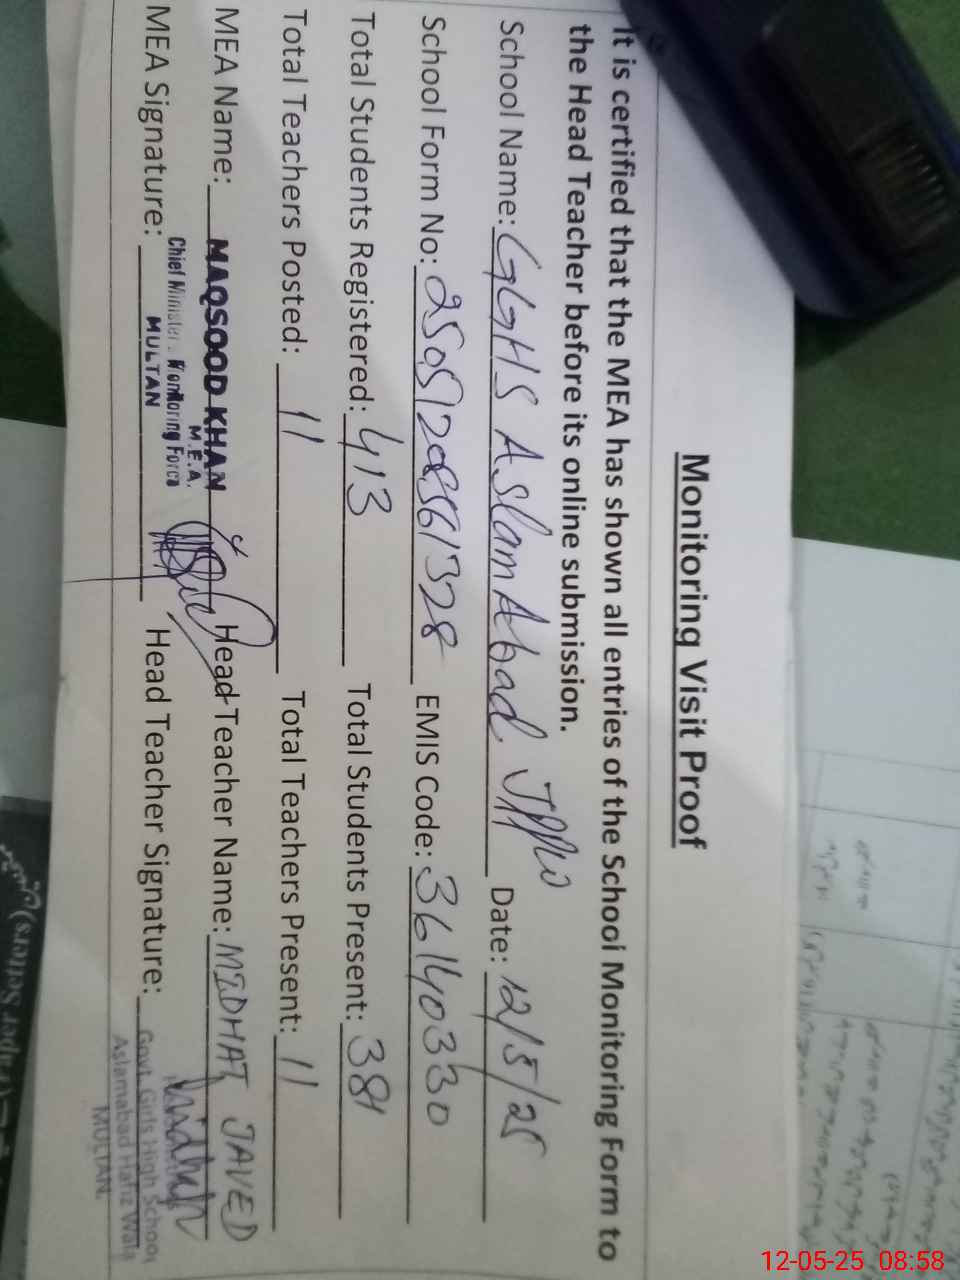 Monitoring Visit Proof
It is certified that the MEA has shown all entries of the School Monitoring Form to
the Head Teacher before its online submission.
School Name: GGHS AslamAbad Date: 12/5/25
School Form No: 25051208561328 EMIS Code: 36140330
Total Students Registered: 413 Total Students Present: 381
Total Teachers Posted: 11 Total Teachers Present: 11
MEA Name: MAQSOOD KHAN Head Teacher Name: MIDHAT JAVED
M.E.A.
Chief Minister Monitoring Force
MULTAN
MEA Signature: Head Teacher Signature: Midhat
Govt. Girls High School
Aslamabad Hafiz Wala
MULTAN.
12-05-25 08:58